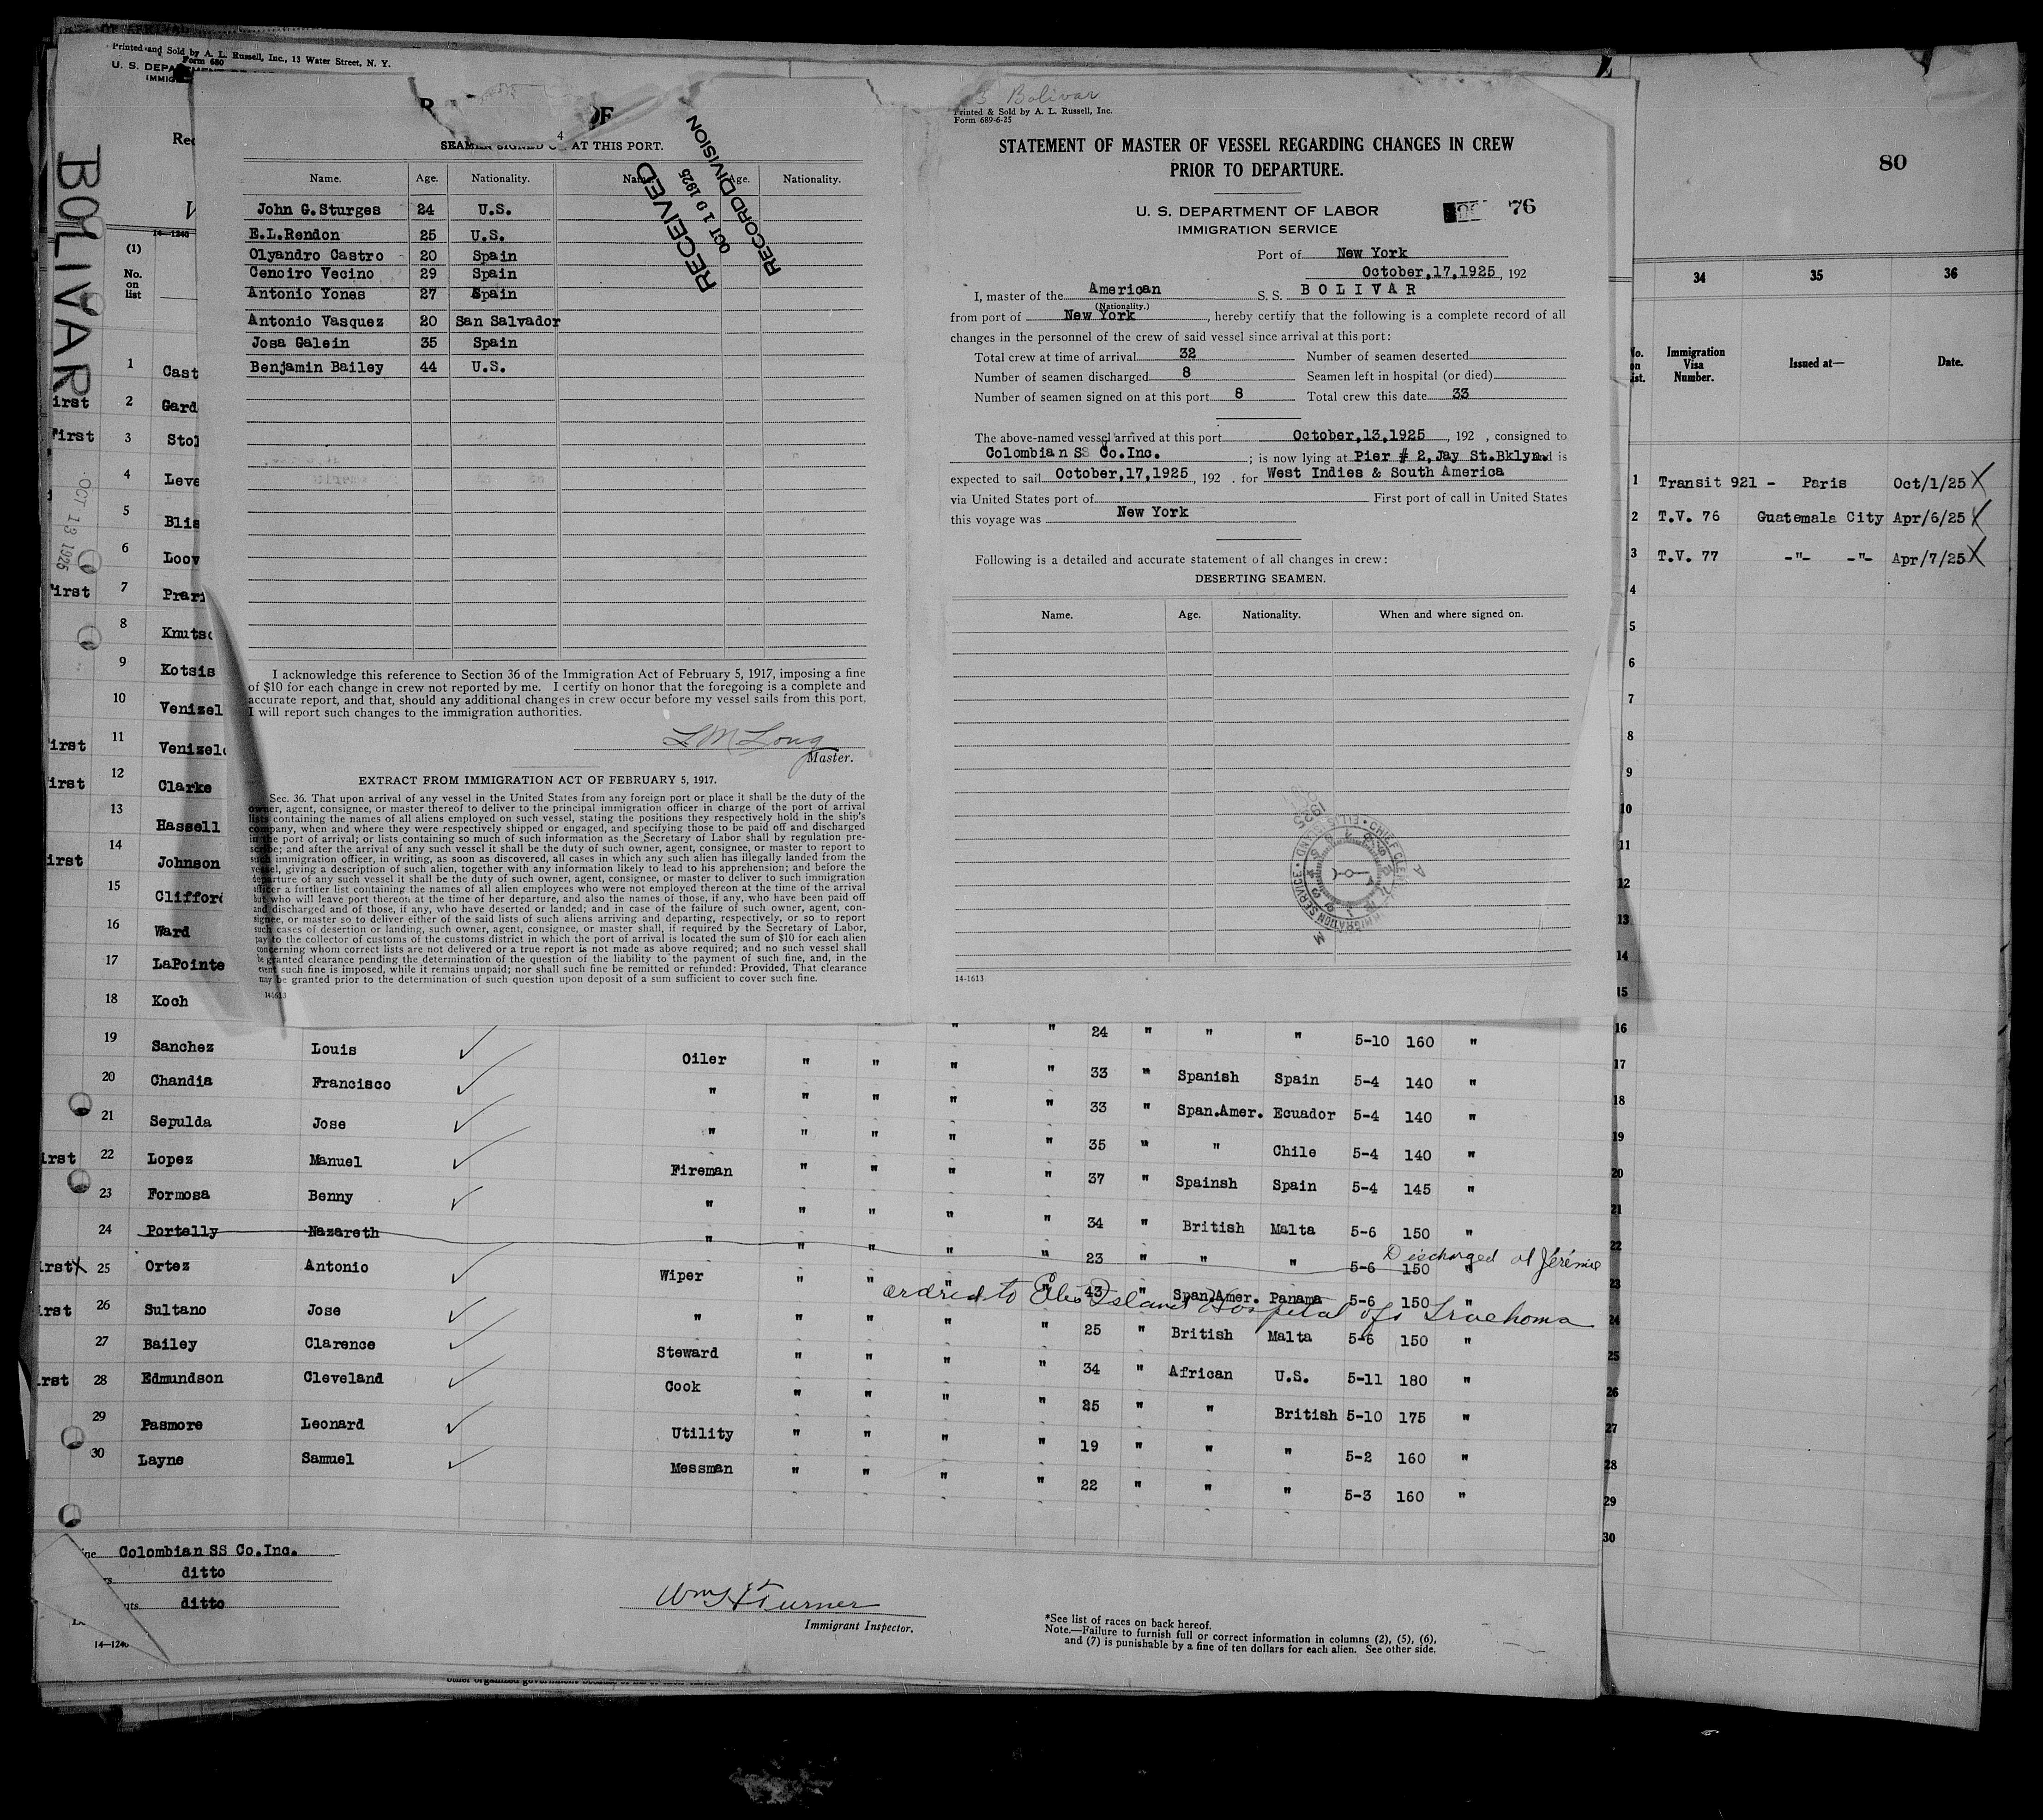 Printed and Sold by A. L. Russell, Inc., 13 Water Street, N. Y.
Form 680
U. S. DEPA
BOLIVAR
OCT 13 1925
4
SEAMEN SIGNED O AT THIS PORT.
Name. Age. Nationality. Name. Age. Nationality.
John G.Sturges 24 U.S.
E.L.Rendon 25 U.S.
Olyandro Castro 20 Spain
Cenoiro Vecino 29 Spain
Antonio Yones 27 Spain
Antonio Vasquez 20 San Salvador
Josa Galein 35 Spain
Benjamin Bailey 44 U.S.
RECEIVED
OCT 19 1925
RECORD DIVISION
I acknowledge this reference to Section 36 of the Immigration Act of February 5, 1917, imposing a fine
of $10 for each change in crew not reported by me. I certify on honor that the foregoing is a complete and
accurate report, and that, should any additional changes in crew occur before my vessel sails from this port,
I will report such changes to the immigration authorities.
L M Long
Master.
EXTRACT FROM IMMIGRATION ACT OF FEBRUARY 5, 1917.
Sec. 36. That upon arrival of any vessel in the United States from any foreign port or place it shall be the duty of the
owner, agent, consignee, or master thereof to deliver to the principal immigration officer in charge of the port of arrival
lists containing the names of all aliens employed on such vessel, stating the positions they respectively hold in the ship's
company, when and where they were respectively shipped or engaged, and specifying those to be paid off and discharged
in the port of arrival; or lists containing so much of such information as the Secretary of Labor shall by regulation pre-
scribe; and after the arrival of any such vessel it shall be the duty of such owner, agent, consignee, or master to report to
such immigration officer, in writing, as soon as discovered, all cases in which any such alien has illegally landed from the
vessel, giving a description of such alien, together with any information likely to lead to his apprehension; and before the
departure of any such vessel it shall be the duty of such owner, agent, consignee, or master to deliver to such immigration
officer a further list containing the names of all alien employees who were not employed thereon at the time of the arrival
but who will leave port thereon at the time of her departure, and also the names of those, if any, who have been paid off
and discharged and of those, if any, who have deserted or landed; and in case of the failure of such owner, agent, con-
signee, or master so to deliver either of the said lists of such aliens arriving and departing, respectively, or so to report
such cases of desertion or landing, such owner, agent, consignee, or master shall, if required by the Secretary of Labor,
pay to the collector of customs of the customs district in which the port of arrival is located the sum of $10 for each alien
concerning whom correct lists are not delivered or a true report is not made as above required; and no such vessel shall
be granted clearance pending the determination of the question of the liability to the payment of such fine, and, in the
event such fine is imposed, while it remains unpaid; nor shall such fine be remitted or refunded: Provided, That clearance
may be granted prior to the determination of such question upon deposit of a sum sufficient to cover such fine.
14-1613
Bolivar
Printed & Sold by A. L. Russell, Inc.
Form 689-6-25
STATEMENT OF MASTER OF VESSEL REGARDING CHANGES IN CREW
PRIOR TO DEPARTURE.
U. S. DEPARTMENT OF LABOR
IMMIGRATION SERVICE
76
Port of New York
October,17,1925, 192
I, master of the American S. S. BOLIVAR
(Nationality.)
from port of New York, hereby certify that the following is a complete record of all
changes in the personnel of the crew of said vessel since arrival at this port:
Total crew at time of arrival 32 Number of seamen deserted
Number of seamen discharged 8 Seamen left in hospital (or died)
Number of seamen signed on at this port 8 Total crew this date 33
The above-named vessel arrived at this port October,13,1925, 192 , consigned to
Colombian SS Co.Inc. ; is now lying at Pier # 2,Jay St.Bklyn. is
expected to sail October,17,1925, 192 . for West Indies & South America
via United States port of First port of call in United States
this voyage was New York
Following is a detailed and accurate statement of all changes in crew:
DESERTING SEAMEN.
Name. Age. Nationality. When and where signed on.
14-1613
80
34 35 36
No. on list. Immigration Visa Number. Issued at— Date.
1 Transit 921 - Paris Oct/1/25 X
2 T.V. 76 Guatemala City Apr/6/25 X
3 T.V. 77 -"- -"- Apr/7/25 X
4
5
6
7
8
9
10
11
12
13
14
15
16
17
18
19
20
21
22
23
24
25
26
27
28
29
30
14—1240
(1)
No. on list
1 Cast
irst 2 Gard
First 3 Stol
4 Leve
5 Blis
6 Loov
First 7 Prari
8 Knutso
9 Kotsis
10 Venizel
irst 11 Venizelo
irst 12 Clarke
13 Hassell
irst 14 Johnson
15 Clifford
16 Ward
17 LaPointe
18 Koch
" " 24 " " " 5-10 160 "
19 Sanchez Louis Oiler " " " 33 " Spanish Spain 5-4 140 "
20 Chandia Francisco " " " " 33 " Span.Amer. Ecuador 5-4 140 "
21 Sepulda Jose " " " " 35 " " Chile 5-4 140 "
irst 22 Lopez Manuel Fireman " " " 37 " Spainsh Spain 5-4 145 "
23 Formosa Benny " " " " 34 " British Malta 5-6 150 "
24 Portelly Nazareth " " " " 23 " " " 5-6 150 "
Discharged at Jérémie
irst X 25 Ortez Antonio Wiper " " " 43 " Span.Amer. Panama 5-6 150 "
ordred to Ellis Island Hospital Trachoma
irst 26 Sultano Jose " " " " 25 " British Malta 5-6 150 "
27 Bailey Clarence Steward " " " 34 " African U.S. 5-11 180 "
irst 28 Edmundson Cleveland Cook " " " 25 " " British 5-10 175 "
29 Pasmore Leonard Utility " " " 19 " " " 5-2 160 "
30 Layne Samuel Messman " " " 22 " " " 5-3 160 "
Colombian SS Co.Inc.
ditto
ditto
14—1240
Wm H Turner
Immigrant Inspector.
*See list of races on back hereof.
Note.—Failure to furnish full or correct information in columns (2), (5), (6),
and (7) is punishable by a fine of ten dollars for each alien. See other side.